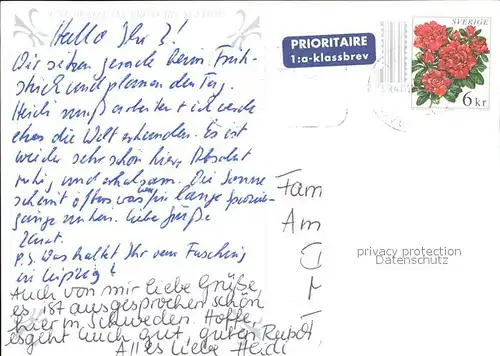 Hallo Ihr 3!
Wir sitzen gerade beim Früh-
stück und planen den Tag.
Heidi muß arbeiten + ich werde
etwas die Welt erkunden. Es ist
wieder sehr schön hier, Absolut
ruhig und erholsam. Die Sonne
scheint öfters was lange Spazier-
gänge Liebe Grüße
P.S. Was haltet Ihr vom Fasching
in Leipzig?
Auch von mir liebe Grüße,
es ist ausgesprochen schön
hier in Schweden. Hoffe,
es geht euch gut, guten
Alles liebe Heidi
PRIORITAIRE
1:a-klassbrev
SVERIGE
6 kr
Fam
Am
privacy protection
Datenschutz